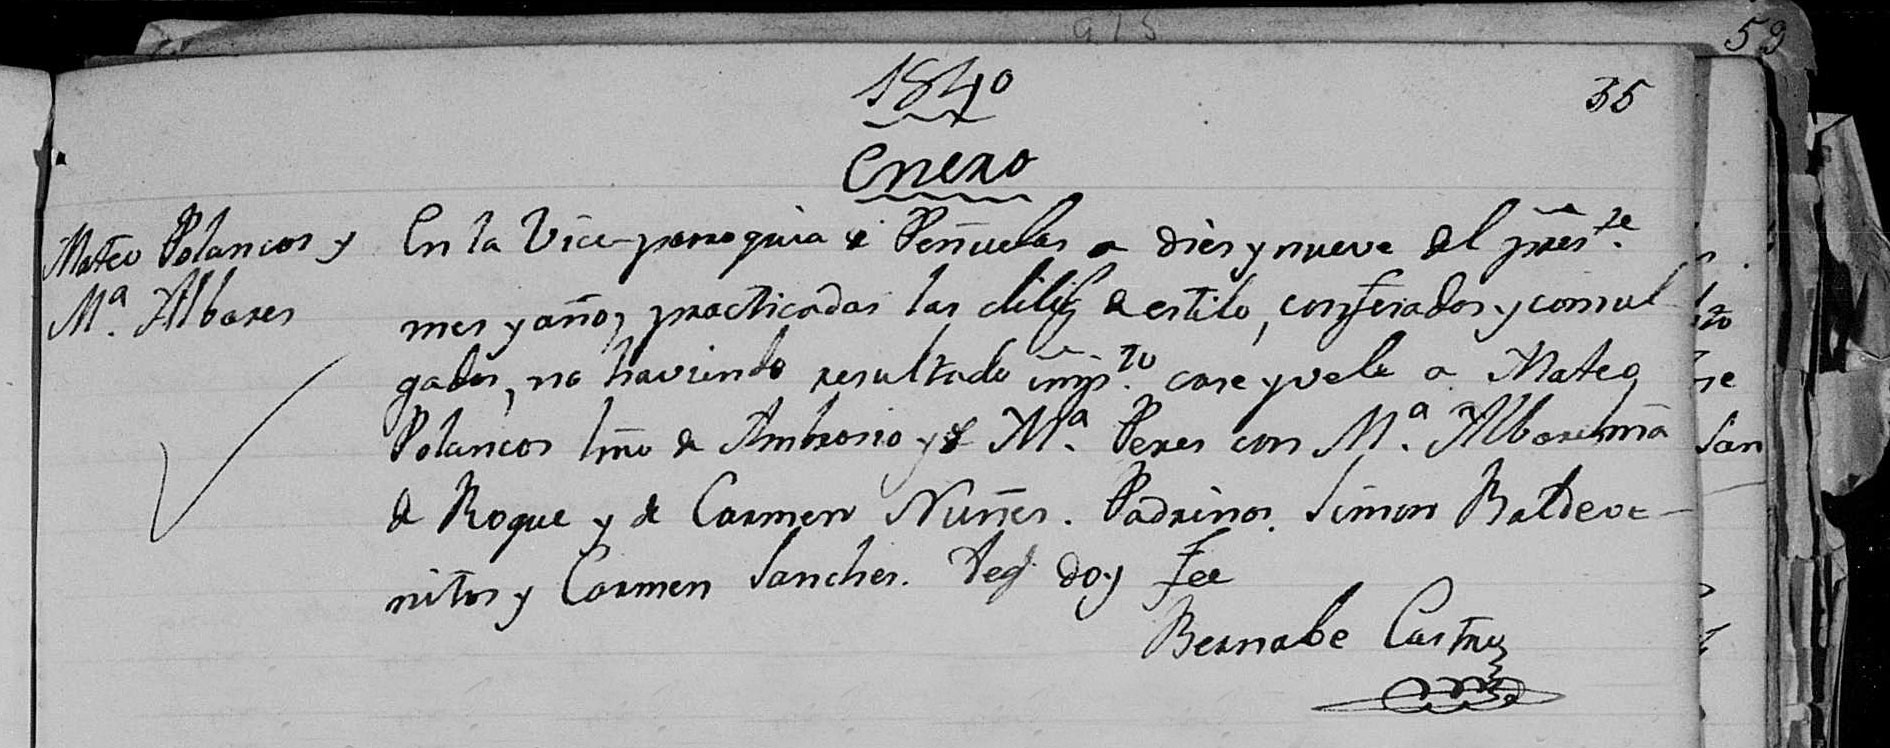 59
1840
35
Enero
Mateo Polancos y
Mª. Albares
En la Vice-parroquia de Peñuelas a dies y nueve del pres.te
mes y año, practicadas las dilig.s de estilo, confesados y comul
gados, no haviendo resultado imp.to case y vele a Mateo
Polancos hijo de Ambrosio y de Mª. Peres con Mª. Albares hija
de Roque y de Carmen Nuñes. Padrinos. Simon Baldeve-
nitos y Carmen Sanches. Deq. doy fee
Bernabe Castro